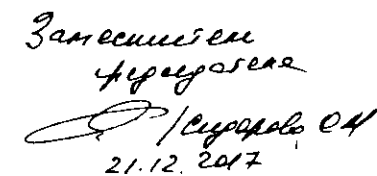 Заместител
председателя
/Сидорова О.М
21.12.2017